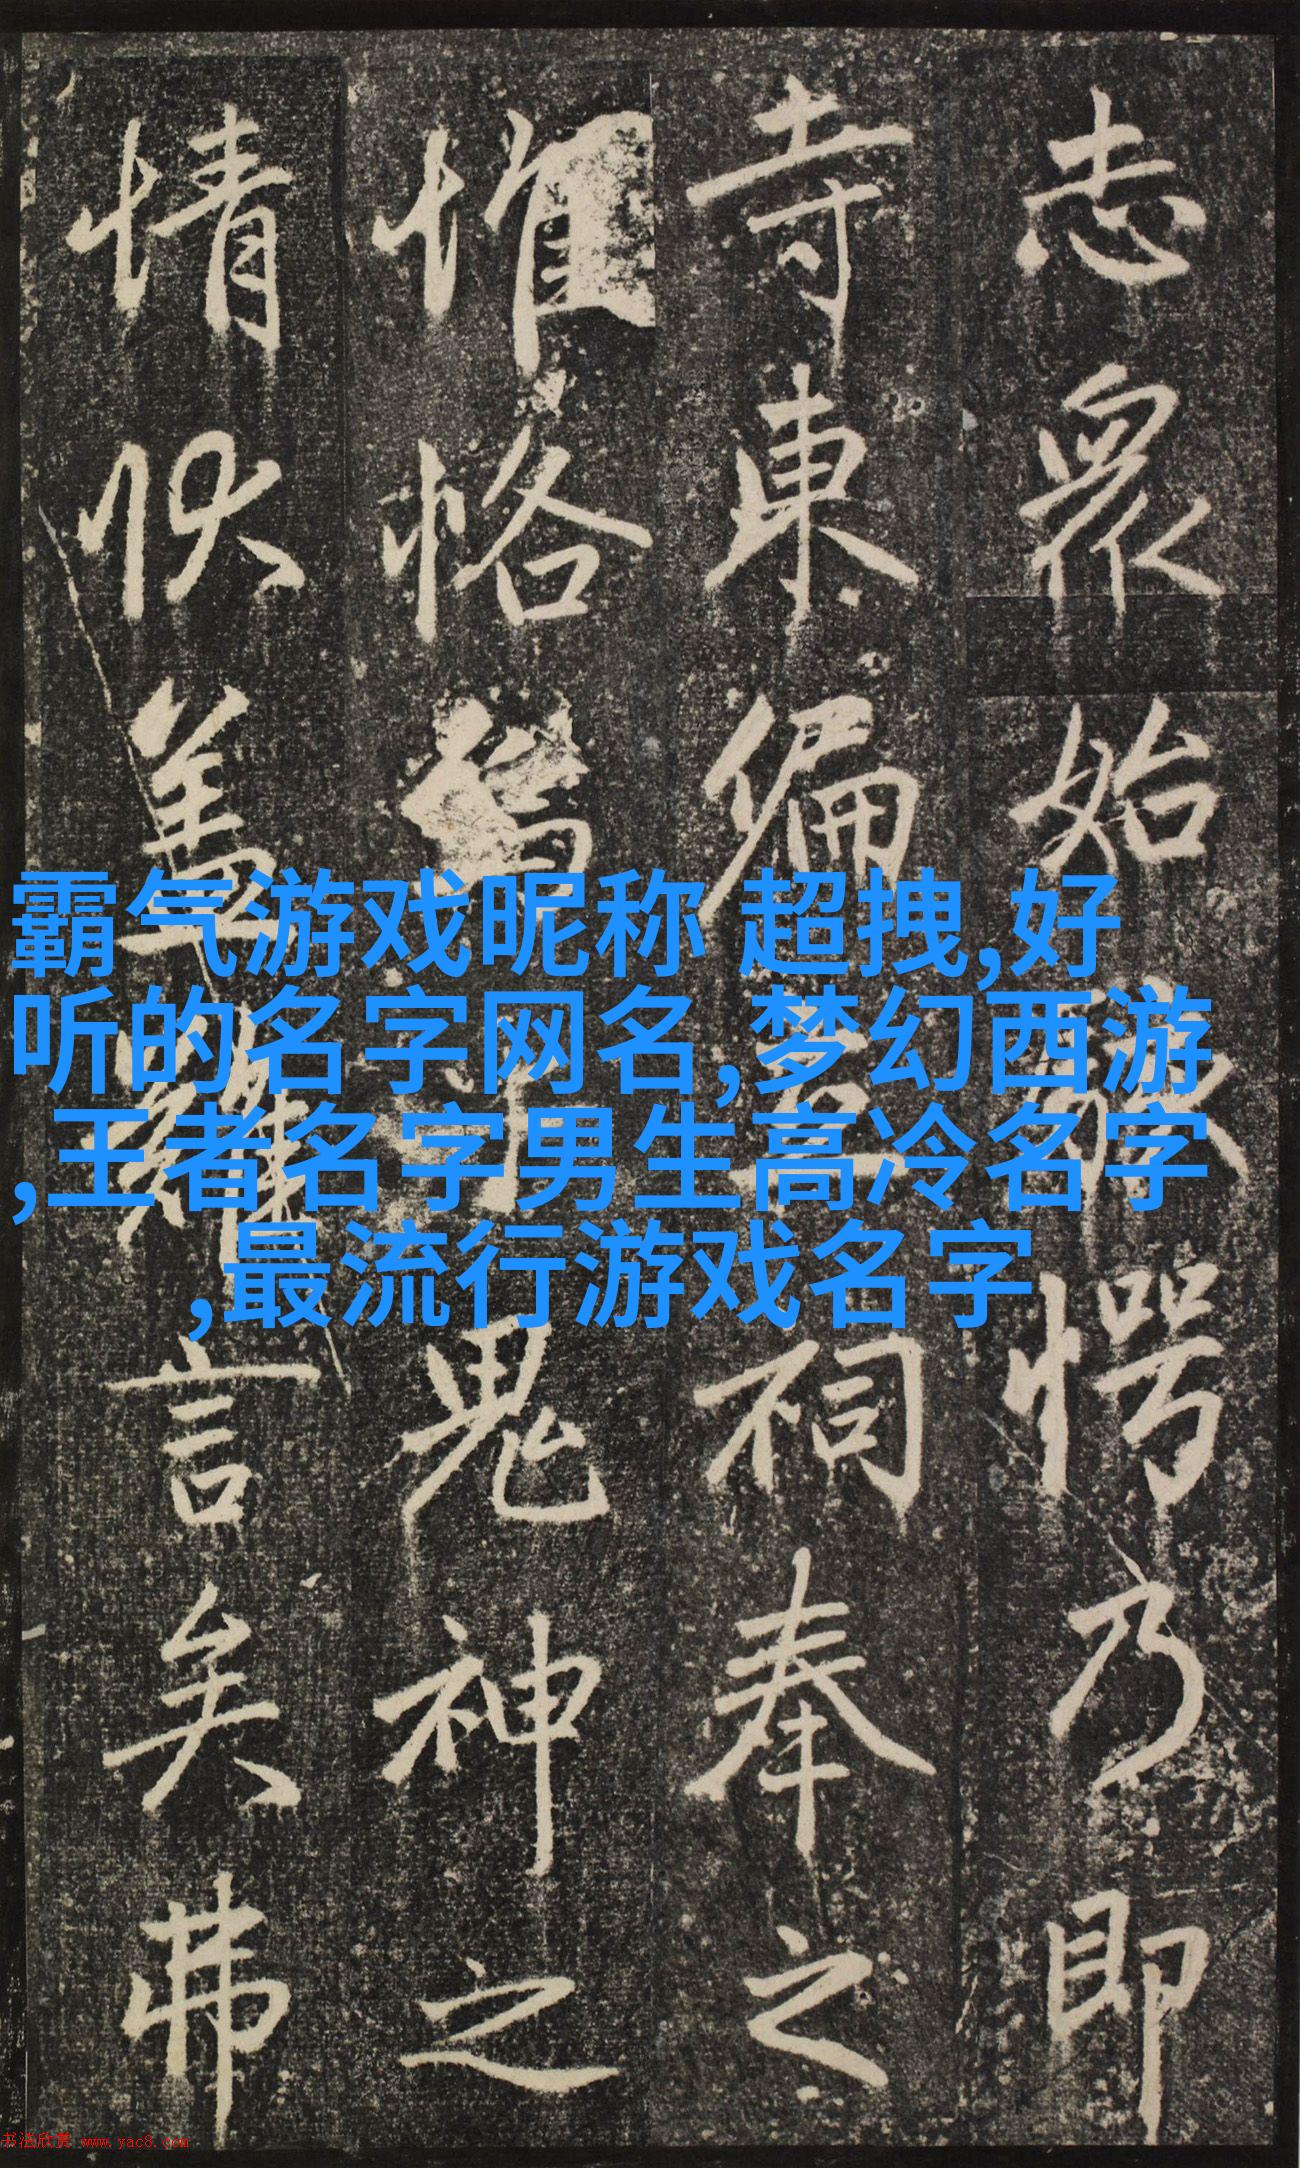 志眾始愕乃即
寺東偏祠奉之
惟恪鬼神之
情狀盖難言矣弗
霸气游戏昵称 超拽,好
听的名字网名,梦幻西游
,王者名字男生高冷名字
,最流行游戏名字
书法欣赏 www.yac8.com